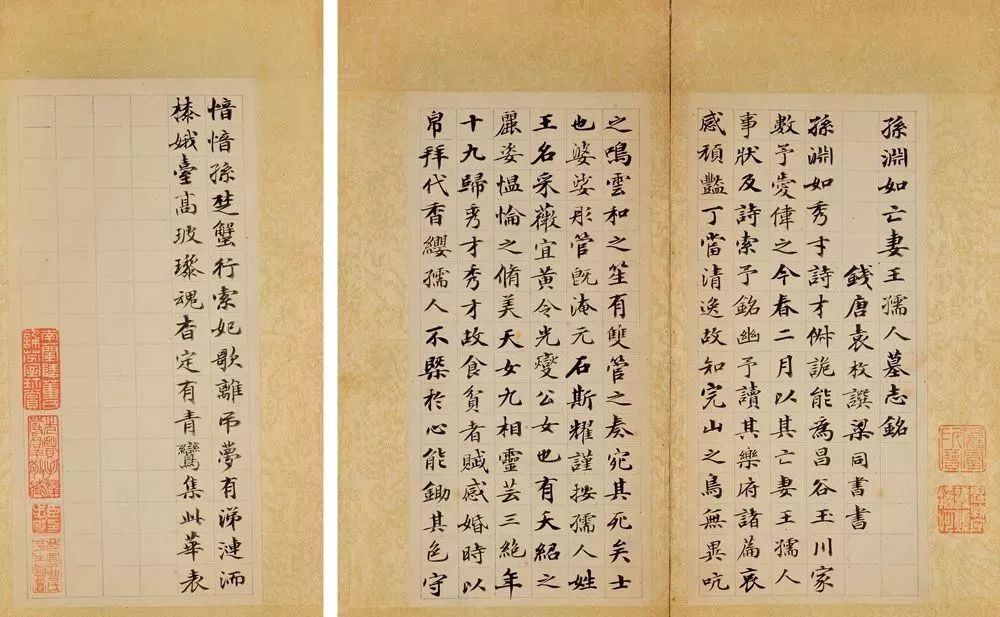 孫淵如亡妻王孺人墓志銘
錢唐袁枚譔梁同書書
孫淵如秀才詩才俶詭能為昌谷玉川家
數予愛偉之今春二月以其亡妻王孺人
事狀及詩索予銘幽予讀其樂府諸篇哀
感頑豔丁當清逸故知完山之鳥無異吭
之鳴雲和之笙有雙管之奏宛其死矣士
也婆娑彤管既淹元石斯耀謹按孺人姓
王名采薇宜黃令光燮公女也有夭紹之
麗姿愠惀之脩美天女九相靈芸三絕年
十九歸秀才秀才故食貧者賦感婚時以
帛拜代香纓孺人不槩於心能鋤其色守
愔愔孫楚蟹行索妃歌離弔夢有涕漣洏
榛娥臺高玻瓈魂杳定有青鸞集此華表